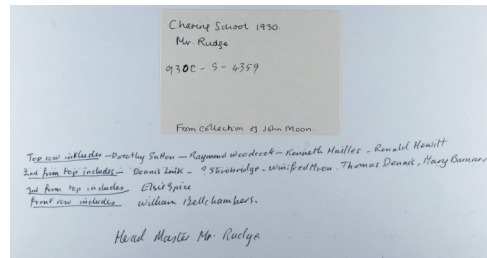 Charing School 1930.
Mr. Rudge
930C - S - 4359
From Collection of John Moon.
Top row includes - Dorothy Sutton - Raymond Woodcock - Kenneth Huilles - Ronald Hewitt
2nd from top includes - Dennis - ? Stivebridge - Winifred Moon. Thomas Dennis - Mary
3rd from top includes Elsie Spice
Front row includes William Bellchambers.
Head Master Mr. Rudge